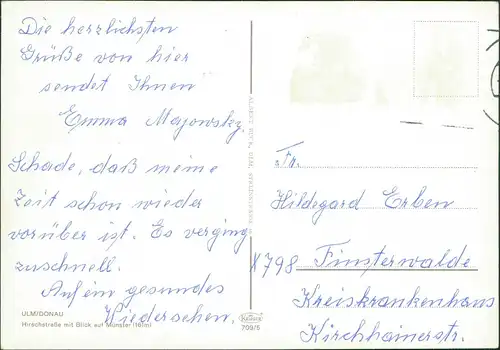 Die herzlichsten
Grüße von hier
sendet Ihnen
Emma Majowsky.
Schade, daß meine
Zeit schon wieder
vorüber ist. Es verging
zuschnell.
Auf ein gesundes
Wiedersehen.
ULM/DONAU
Hirschstraße mit Blick auf Münster (161m)
709/5
Fr.
Hildegard Erben
X 798 Finsterwalde
Kreiskrankenhaus
Kirchhainerstr.